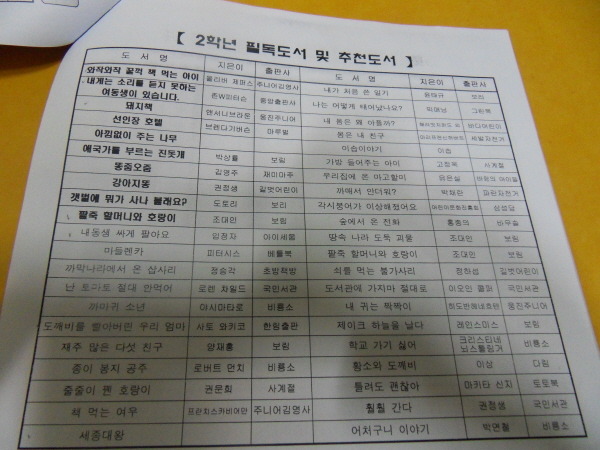 【 2학년 필독도서 및 추천도서 】
도 서 명 지은이 출판사 도 서 명 지은이 출판사
와작와작 꿀꺽 책 먹는 아이 올리버 제퍼스 주니어김영사 내가 처음 쓴 일기 윤태규 보리
내게는 소리를 듣지 못하는 여동생이 있습니다. 존W피터슨 중앙출판사 나는 어떻게 태어났나요? 그린북
돼지책 앤서니브라운 웅진주니어 내 몸은 왜 아플까? 바다어린이
선인장 호텔 브렌다기버슨 마루벌 몸은 내 친구 세발자전거
아낌없이 주는 나무 이솝이야기 이솝
애국가를 부르는 진돗개 박상률 보림 가방 들어주는 아이 고정욱 사계절
똥줌오줌 김영주 재미마주 우리집에 온 마고할미 유은실 바람의 아이들
강아지똥 권정생 길벗어린이 까매서 안더워? 박채란 파란자전거
갯벌에 뭐가 사나 볼래요? 도토리 보리 각시붕어가 이상해졌어요 삼성당
팥죽 할머니와 호랑이 조대인 보림 숲에서 온 전화 홍종의 바우솔
내동생 싸게 팔아요 임정자 아이세움 땅속 나라 도둑 괴물 조대인 보림
마들렌카 피터시스 베틀북 팥죽 할머니와 호랑이 조대인 보림
까막나라에서 온 삽사리 정승각 초방책방 쇠를 먹는 불가사리 정하섭 길벗어린이
난 토마토 절대 안먹어 로렌 차일드 국민서관 도서관에 가지마 절대로 이오인 콜퍼 국민서관
까마귀 소년 야시마타로 비룡소 내 귀는 짝짝이 웅진주니어
도깨비를 빨아버린 우리 엄마 사토 와키코 한림출판 제이크 하늘을 날다 레인스미스 보림
재주 많은 다섯 친구 양재홍 보림 학교 가기 싫어 크리스티네 뇌스틀링거 비룡소
종이 봉지 공주 로버트 먼치 비룡소 황소와 도깨비 이상 다림
줄줄이 꿴 호랑이 권문희 사계절 틀려도 괜찮아 마키타 신지 토토북
책 먹는 여우 프란치스카비어만 주니어김영사 훨훨 간다 권정생 국민서관
세종대왕 어처구니 이야기 박연철 비룡소